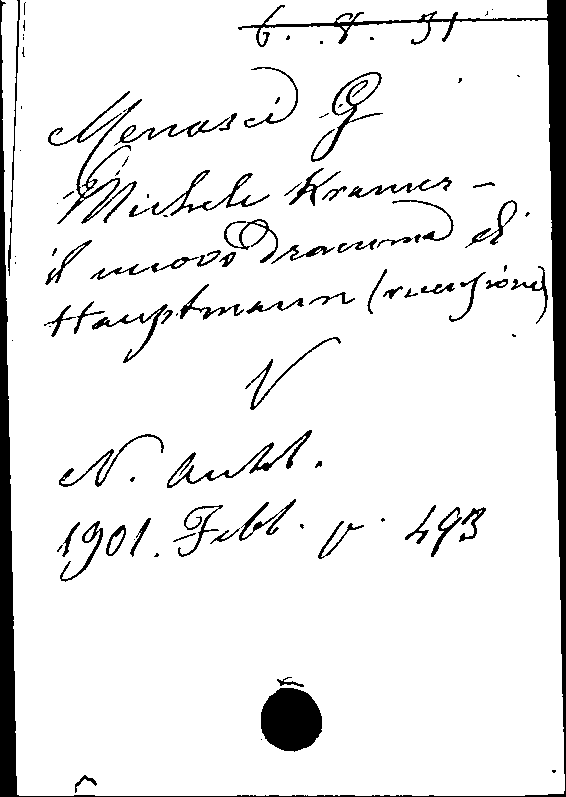 6. 8. 31
Menasci G
Michele Kramer -
il nuovo dramma di
Hauptmann (recensione)
V
N. Antol.
1901. Febb. p. 493